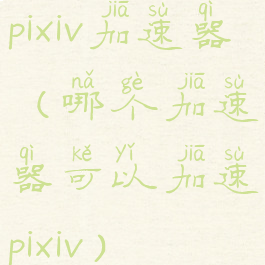 jiā sù qì
pixiv加速器
nǎ gè jiā sù
（哪个加速
qì kě yǐ jiā sù
器可以加速
pixiv）